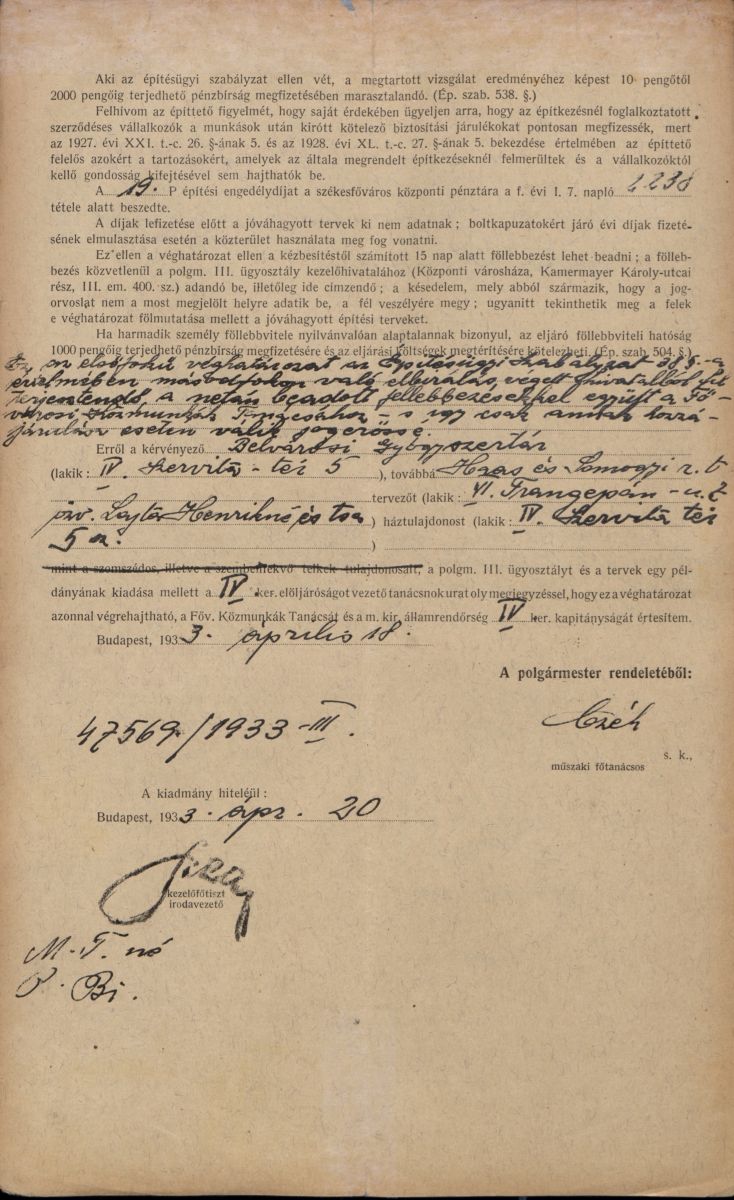 Aki az építésügyi szabályzat ellen vét, a megtartott vizsgálat eredményéhez képest 10 pengőtől
2000 pengőig terjedhető pénzbírság megfizetésében marasztalandó. (Ép. szab. 538. §.)
Felhívom az építtető figyelmét, hogy saját érdekében ügyeljen arra, hogy az építkezésnél foglalkoztatott
szerződéses vállalkozók a munkások után kirótt kötelező biztosítási járulékokat pontosan megfizessék, mert
az 1927. évi XXI. t.-c. 26. §-ának 5. és az 1928. évi XL. t.-c. 27. §-ának 5. bekezdése értelmében az építtető
felelős azokért a tartozásokért, amelyek az általa megrendelt építkezéseknél felmerültek és a vállalkozóktól
kellő gondosság kifejtésével sem hajthatók be.
A 19. P építési engedélydíjat a székesfőváros központi pénztára a f. évi I. 7. napló 2238
tétele alatt beszedte.
A díjak lefizetése előtt a jóváhagyott tervek ki nem adatnak; boltkapuzatokért járó évi díjak fizeté-
sének elmulasztása esetén a közterület használata meg fog vonatni.
Ez ellen a véghatározat ellen a kézbesítéstől számított 15 nap alatt föllebbezést lehet beadni; a följeb-
bezés közvetlenül a polgm. III. ügyosztály kezelőhivatalához (Központi városháza, Kamermayer Károly-utcai
rész, III. em. 400. sz.) adandó be, illetőleg ide címzendő; a késedelem, mely abból származik, hogy a jog-
orvoslat nem a most megjelölt helyre adatik be, a fél veszélyére megy; ugyanitt tekinthetik meg a felek
e véghatározat fölmutatása mellett a jóváhagyott építési terveket.
Ha harmadik személy föllebbvitele nyilvánvalóan alaptalannak bizonyul, az eljáró föllebbviteli hatóság
1000 pengőig terjedhető pénzbírság megfizetésére és az eljárási költségek megtérítésére kötelezheti. (Ép. szab. 504. §.)
Ez az elsőfokú véghatározat az Építésügyi Szabályzat 38 §-a
értelmében másodfokon való elbírálás végett hivatalból fel
terjesztendő, a netán beadott fellebbezésekkel együtt a Fő-
városi Közmunkák Tanácsához – s így csak annak hozzá-
járulása esetén válik jogerőssé.
Erről a kérvényező Belvárosi Gyógyszertár
(lakik: IV. Szervita-tér 5), továbbá Haas és Somogyi r.t
tervezőt (lakik: VI. Frangepán-u. 7
özv. Lajta Henrikné és tsa) háztulajdonost (lakik: IV. Szervita tér
5 sz. )
mint a szomszédos, illetve a szembenfekvő telkek tulajdonosait, a polgm. III. ügyosztályt és a tervek egy pél-
dányának kiadása mellett a IV. ker. elöljáróságot vezető tanácsnok urat oly megjegyzéssel, hogy ez a véghatározat
azonnal végrehajtható, a Főv. Közmunkák Tanácsát és a m. kir. államrendőrség IV. ker. kapitányságát értesítem.
Budapest, 1933. április 18.
A polgármester rendeletéből:
47569/1933-III.
Czéh
s. k.,
műszaki főtanácsos
A kiadmány hiteléül:
Budapest, 1933. ápr. 20
kezelőfőtiszt
irodavezető
M. T. nó
Bi.